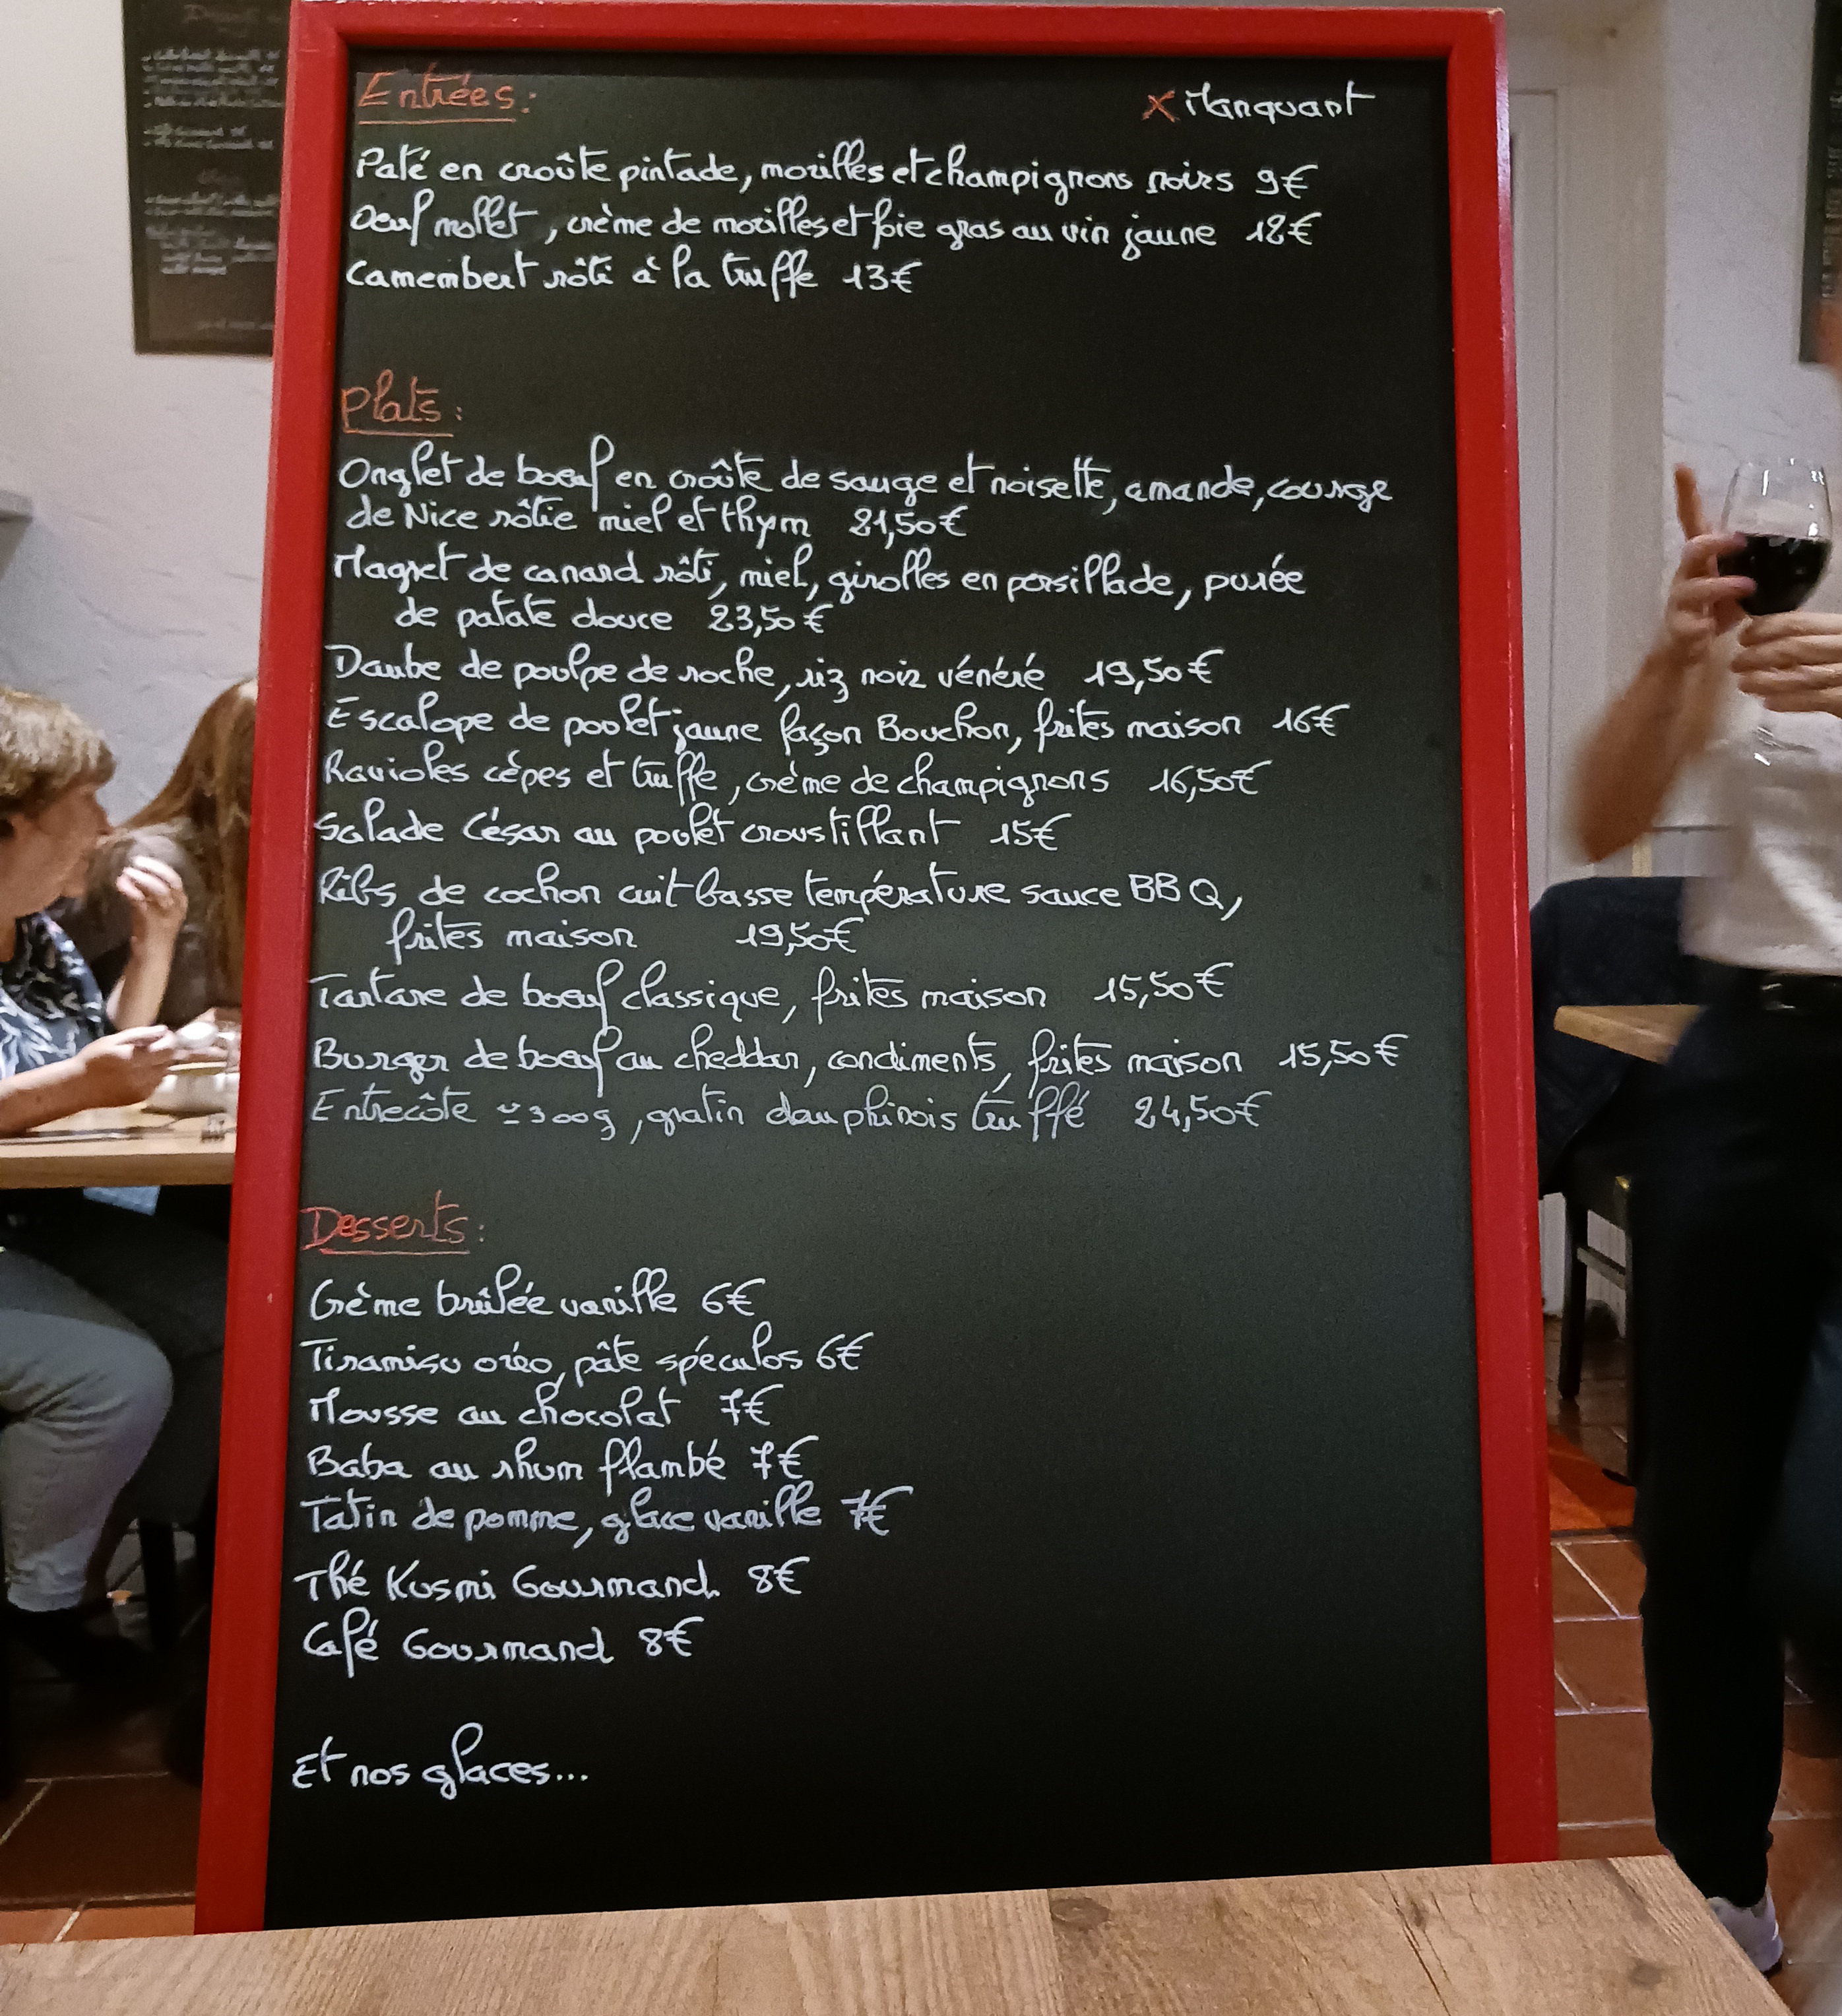 Entrées:
x Manquant
Paté en croûte pintade, morilles et champignons noirs 9€
Oeuf mollet, crème de morilles et foie gras au vin jaune 12€
Camembert rôti à la truffe 13€
Plats:
Onglet de boeuf en croûte de sauge et noisette, amande, courge
de Nice rôtie miel et thym 21,50€
Magret de canard rôti, miel, girolles en persillade, purée
de patate douce 23,50€
Daube de poulpe de roche, riz noir vénéré 19,50€
Escalope de poulet jaune façon Bouchon, frites maison 16€
Ravioles cèpes et truffe, crème de champignons 16,50€
Salade César au poulet croustillant 15€
Ribs de cochon cuit basse température sauce BBQ,
frites maison 19,50€
Tartare de boeuf classique, frites maison 15,50€
Burger de boeuf au cheddar, condiments, frites maison 15,50€
Entrecôte ≃300g, gratin dauphinois truffé 24,50€
Desserts:
Crème brûlée vanille 6€
Tiramisu oréo, pâte spéculos 6€
Mousse au chocolat 7€
Baba au rhum flambé 7€
Tatin de pomme, glace vanille 7€
Thé Kusmi Gourmand 8€
Café Gourmand 8€
Et nos glaces...